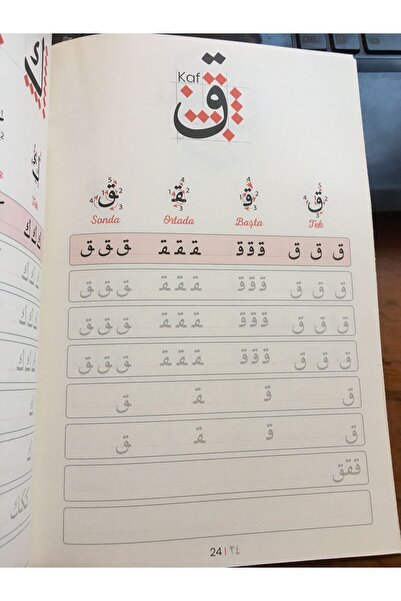 Kaf
ق
ق قـ ـقـ ـق
Sonda Ortada Başta Tek
ق ق ق قـ قـ قـ ـقـ ـقـ ـقـ ـق ـق ـق
ق ق ق قـ قـ قـ ـقـ ـقـ ـقـ ـق ـق ـق
ق ق ق قـ قـ قـ ـقـ ـقـ ـقـ ـق ـق ـق
ق ق ق قـ قـ قـ ـقـ ـقـ ـقـ ـق ـق ـق
ق قـ ـقـ ـق
ق قـ ـقـ ـق
ققق
24 | ٢٤